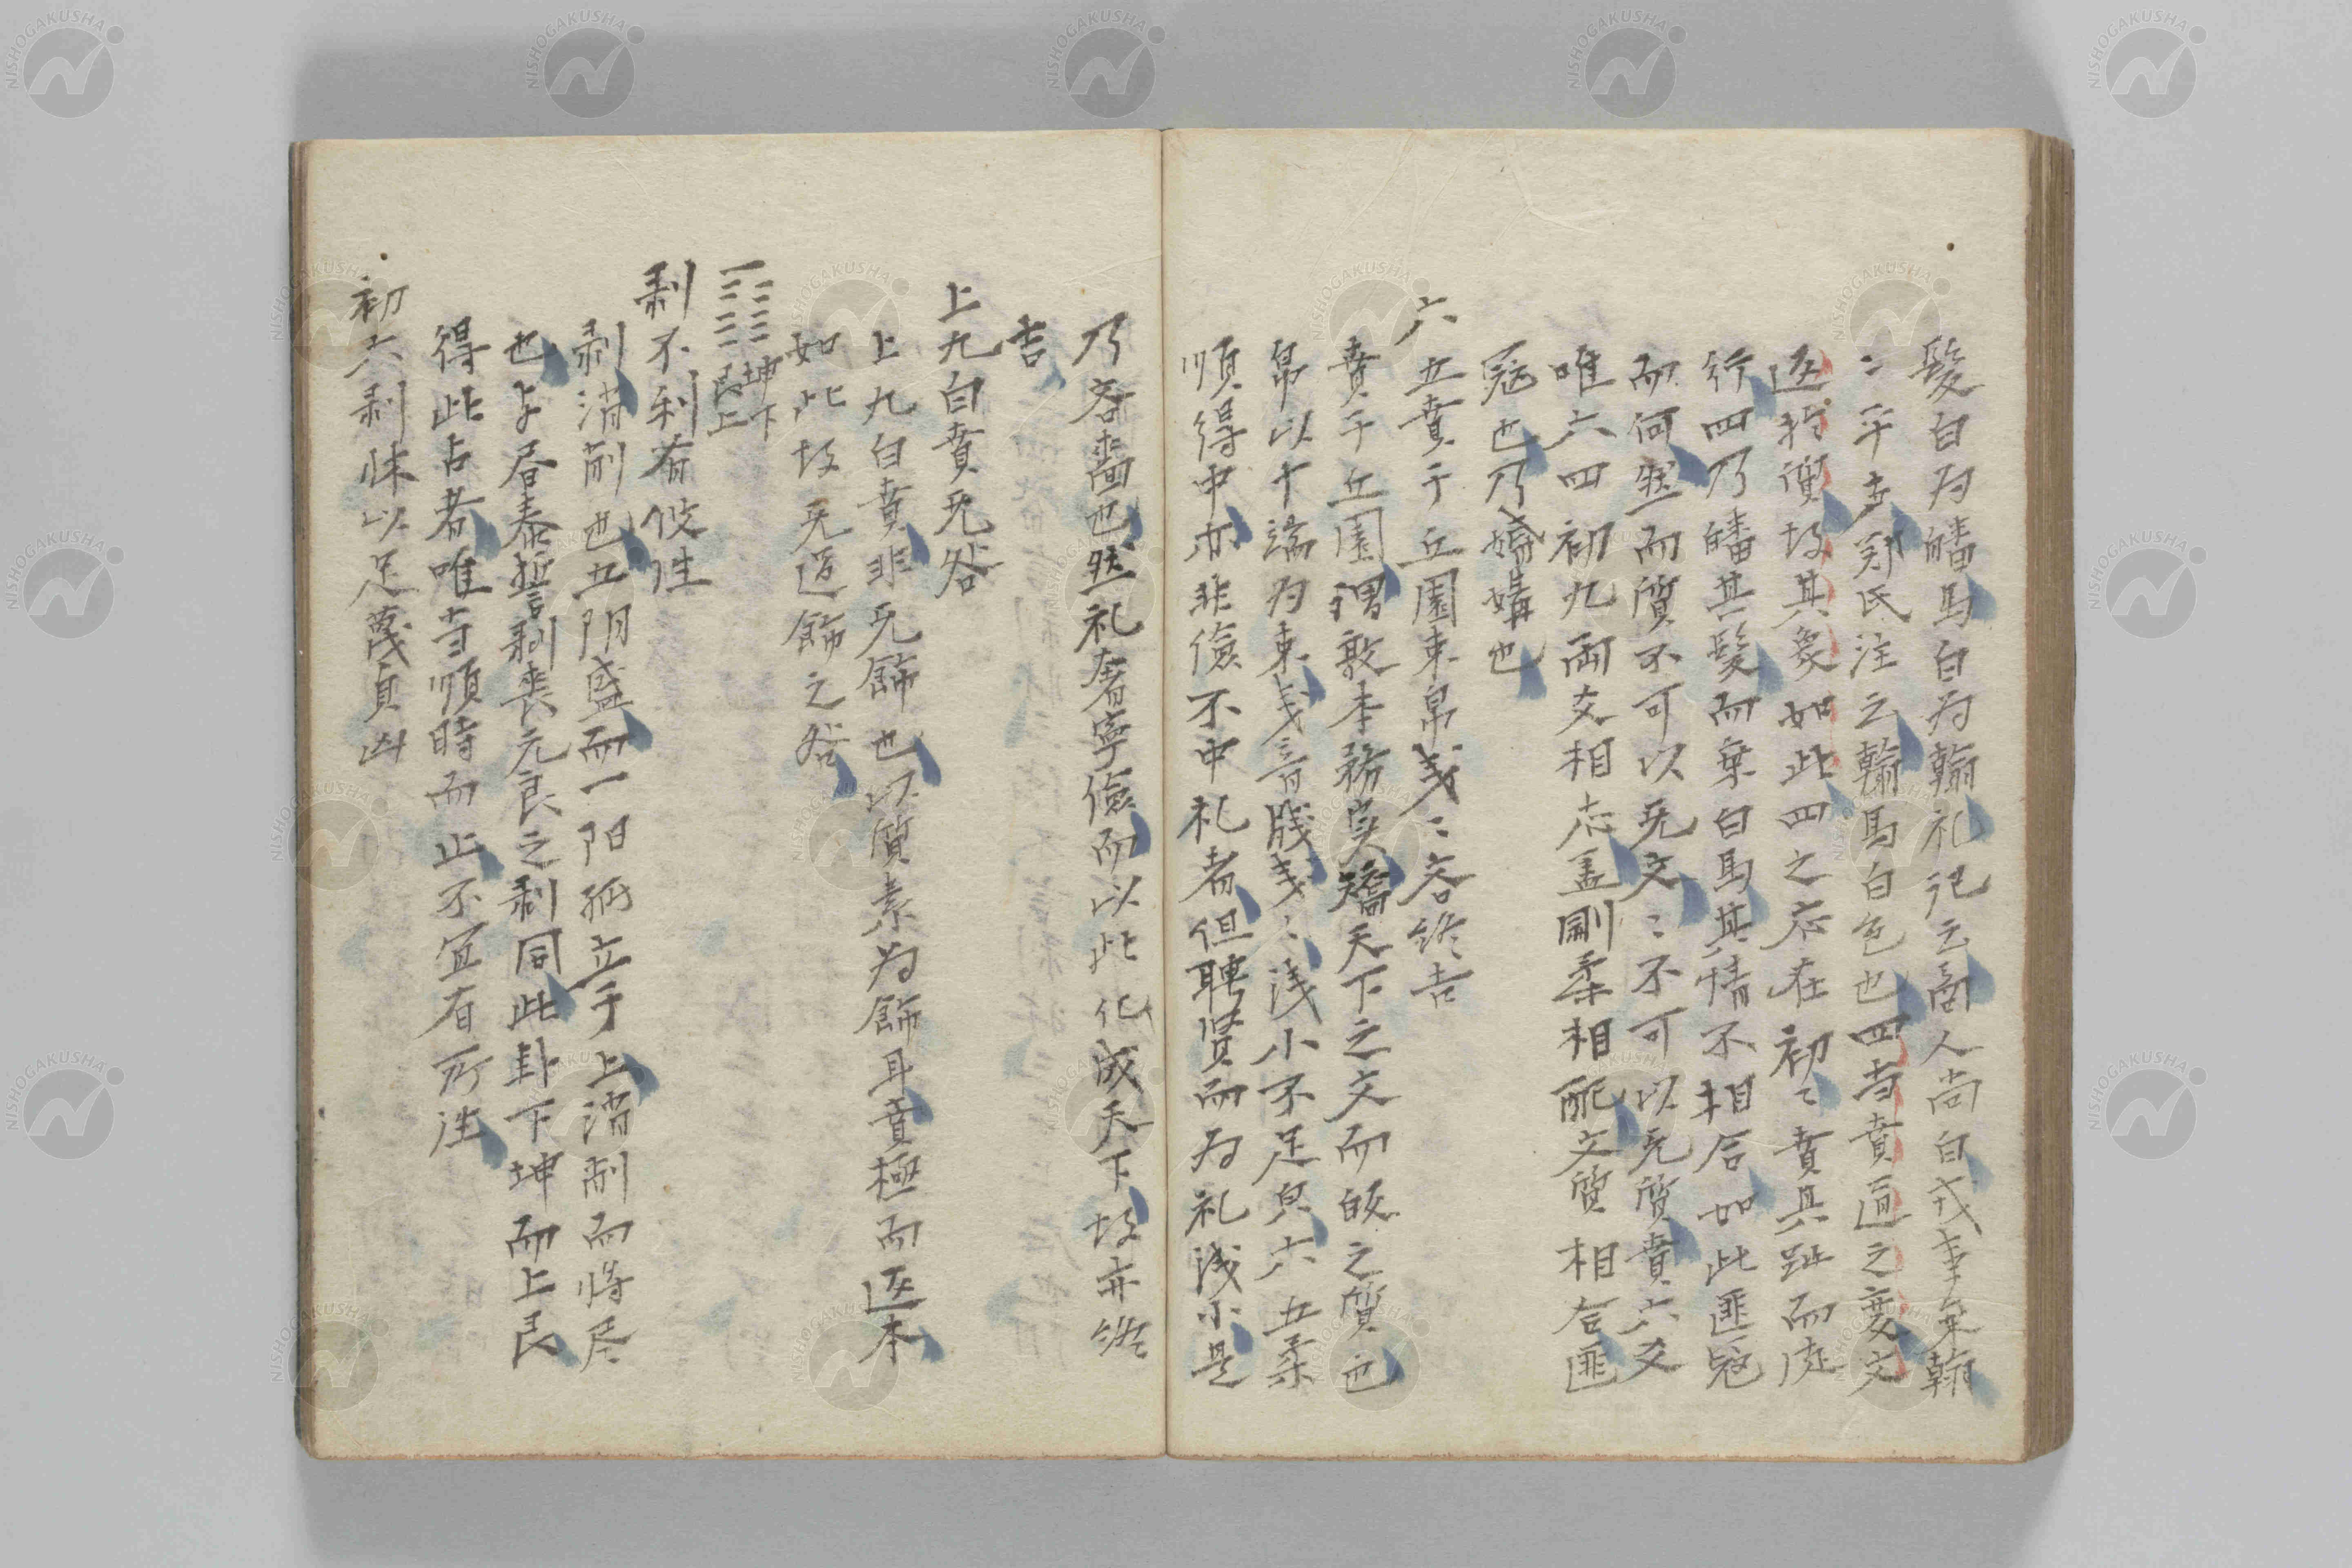 髮白为皤馬白为翰礼記云商人尚白戎事乗翰
〻平步鄭氏注云翰馬白色也四当賁道之変文
返於質故其象如此四之応在初〻賁其趾而徒
行四乃皤其髮而乗白馬其情不相合如此匪寇
而何然而質不可以无文〻不可以无質賁六爻
唯六四初九両爻相応盖剛柔相配文質相合匪
寇也乃婚媾也
六五賁于丘園束帛戔〻吝終吉
賁于丘園謂敦本務実矯天下之文而皈之質也
帛以十端为束戔音牋戔〻浅小不足皃六五柔
順得中亦非倹不中礼者但聘賢而为礼浅小是
乃吝嗇也然礼奢寧倹而以此化成天下故亦終
吉
上九白賁无咎
上九白賁非无飾也以質素为飾耳賁極而返本
如此故无過飾之咎
坤下
艮上
剥不利有攸往
剥消削也五阴盛而一阳孤立于上消剥而将尽
也与唇泰誓剥喪元良之剥同此卦下坤而上艮
得此占者唯寺順時而止不宜有所往
初六剥牀以足蔑貞凶
NISHOGAKUSHA